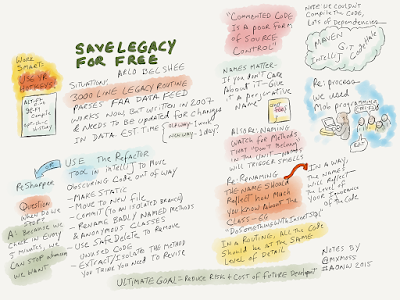 SAVE LEGACY
FOR FREE
ARLO BELSHEE
WORK
SMART:
USE YR
HOTKEYS!
SITUATION:
3000 LINE LEGACY ROUTINE
PARSES FAA DATA FEED
WORKS NOW BUT WRITTEN IN 2004
& NEEDS TO BE UPDATED FOR CHANGES
IN DATA EST TIME
OLD WAY - 1
NEW WAY - 1 DAY?
ReSharper
USE THE Refactor
TOOL IN intelliJ TO MOVE
OBSCURING CODE OUT OF WAY
- MAKE STATIC
- MOVE TO NEW FILE
- COMMIT (TO AN ISOLATED BRANCH)
- RENAME BADLY NAMED METHODS
& ANONYMOUS CLASSES
- USE SAFE DELETE TO REMOVE
UNUSED CODE
- EXTRACT/ISOLATE THE METHOD
YOU THINK YOU NEED TO REVISE
Question
WHEN DO WE
START?
A: BECAUSE WE
CHECK IN EVERY
5 MINUTES, WE
CAN STOP WHENEVER
WE WANT
ULTIMATE GOAL = REDUCE RISK & COST OF FUTURE DEVELOPMENT
"COMMENTED CODE
IS A POOR FORM
OF SOURCE
CONTROL"
NAMES MATTER -
IF YOU DON'T CARE
ABOUT IT - GIVE
IT A PEJORATIVE
NAME
ALSO RE: NAMING
WATCH FOR METHODS
THAT DON'T BELONG
IN THE UNIT - NAMES
WILL TRIGGER SMELLS
Re: RENAMING
THE NAME SHOULD
REFLECT HOW MUCH
YOU KNOW ABOUT THE
CLASS - EG
"DoSomethingWithInsetId()"
IN A ROUTING, ALL THE CODE
SHOULD BE AT THE SAME
LEVEL OF DETAIL
NOTE WE COULDN'T
COMPILE THE CODE,
LOTS OF DEPENDENCIES
MAVEN
GIT
IntelliJ
CodeHale
Re: process
WE NEED
MOB PROGRAMMING
IN A WAY,
THE NAMES
WILL REFLECT
THE LEVEL OF
YOUR IGNORANCE
OF THE
CODE
NOTES BY
@MXMOSS
@AONW 2015